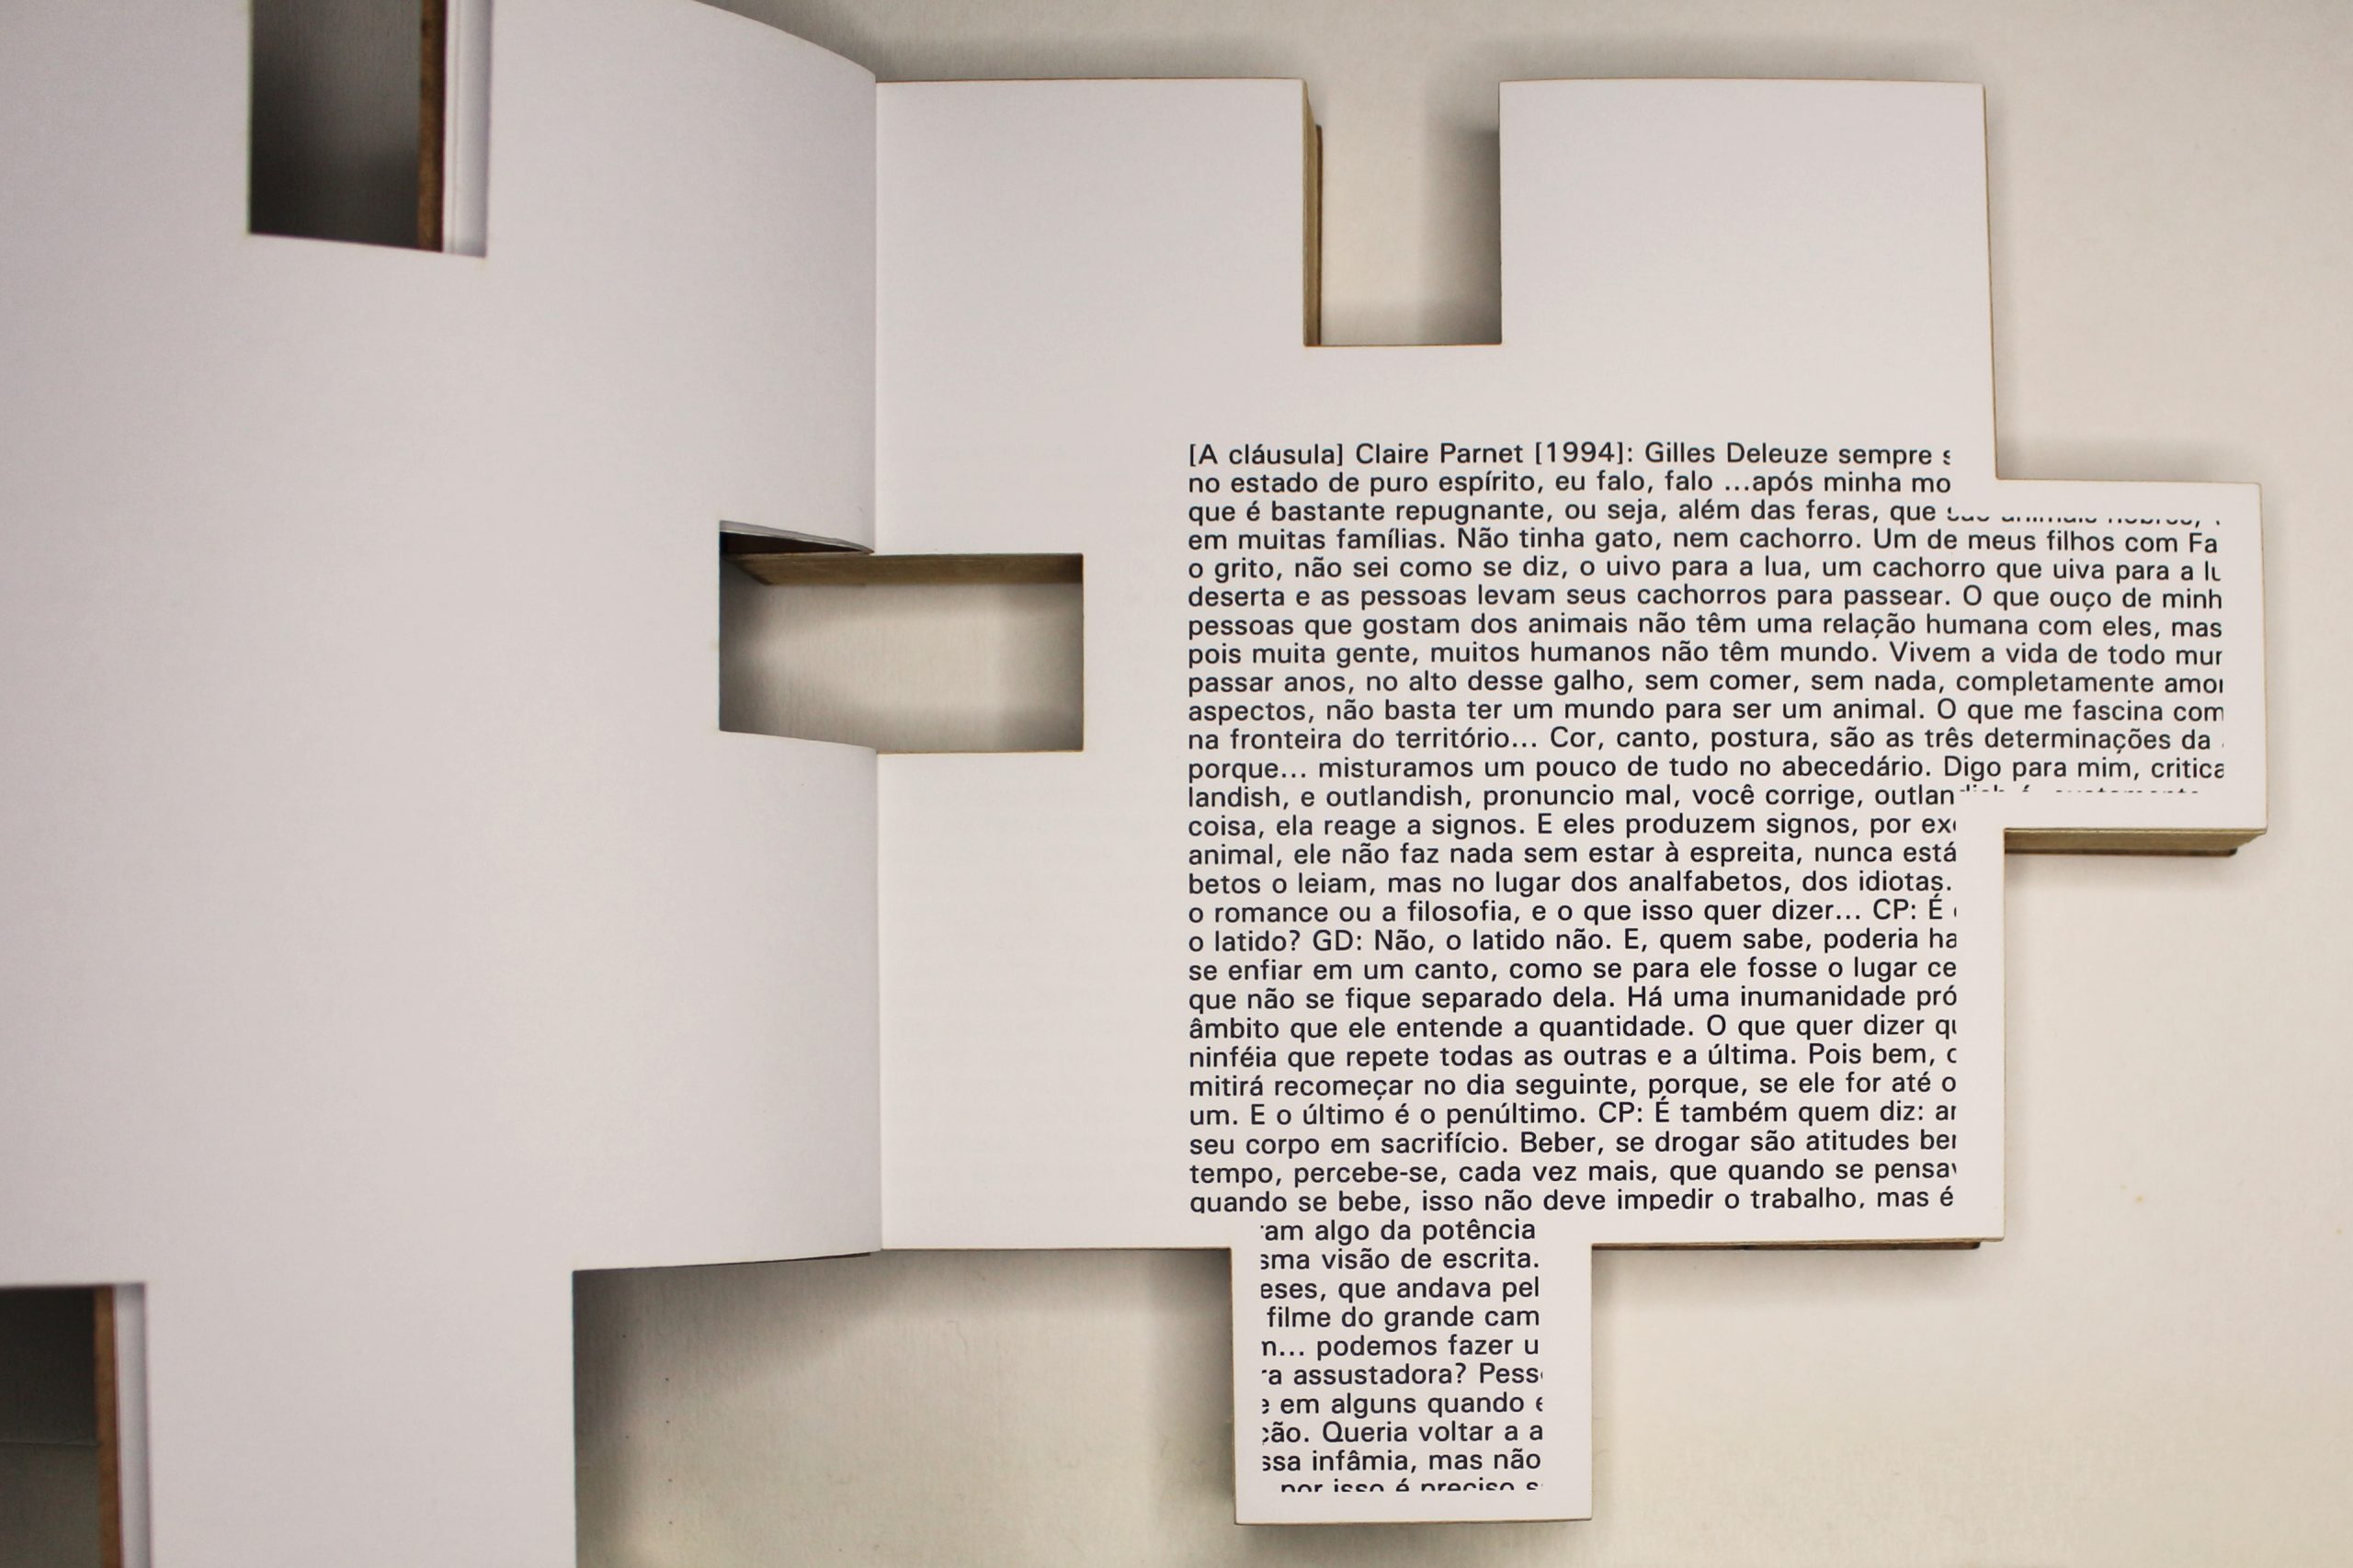 [A cláusula] Claire Parnet [1994]: Gilles Deleuze sempre s
no estado de puro espírito, eu falo, falo ...após minha mo
que é bastante repugnante, ou seja, além das feras, que
em muitas famílias. Não tinha gato, nem cachorro. Um de meus filhos com Fa
o grito, não sei como se diz, o uivo para a lua, um cachorro que uiva para a lu
deserta e as pessoas levam seus cachorros para passear. O que ouço de minh
pessoas que gostam dos animais não têm uma relação humana com eles, mas
pois muita gente, muitos humanos não têm mundo. Vivem a vida de todo mun
passar anos, no alto desse galho, sem comer, sem nada, completamente amor
aspectos, não basta ter um mundo para ser um animal. O que me fascina com
na fronteira do território... Cor, canto, postura, são as três determinações da
porque... misturamos um pouco de tudo no abecedário. Digo para mim, critica
landish, e outlandish, pronuncio mal, você corrige, outlan
coisa, ela reage a signos. E eles produzem signos, por ex
animal, ele não faz nada sem estar à espreita, nunca está
betos o leiam, mas no lugar dos analfabetos, dos idiotas.
o romance ou a filosofia, e o que isso quer dizer... CP: É
o latido? GD: Não, o latido não. E, quem sabe, poderia ha
se enfiar em um canto, como se para ele fosse o lugar ce
que não se fique separado dela. Há uma inumanidade pró
âmbito que ele entende a quantidade. O que quer dizer qu
ninféia que repete todas as outras e a última. Pois bem, o
mitirá recomeçar no dia seguinte, porque, se ele for até o
um. E o último é o penúltimo. CP: É também quem diz: ar
seu corpo em sacrifício. Beber, se drogar são atitudes ber
tempo, percebe-se, cada vez mais, que quando se pensav
quando se bebe, isso não deve impedir o trabalho, mas é
ram algo da potência
sma visão de escrita.
eses, que andava pel
filme do grande cam
n... podemos fazer u
ra assustadora? Pess
e em alguns quando e
ção. Queria voltar a a
ssa infâmia, mas não
por isso é preciso s